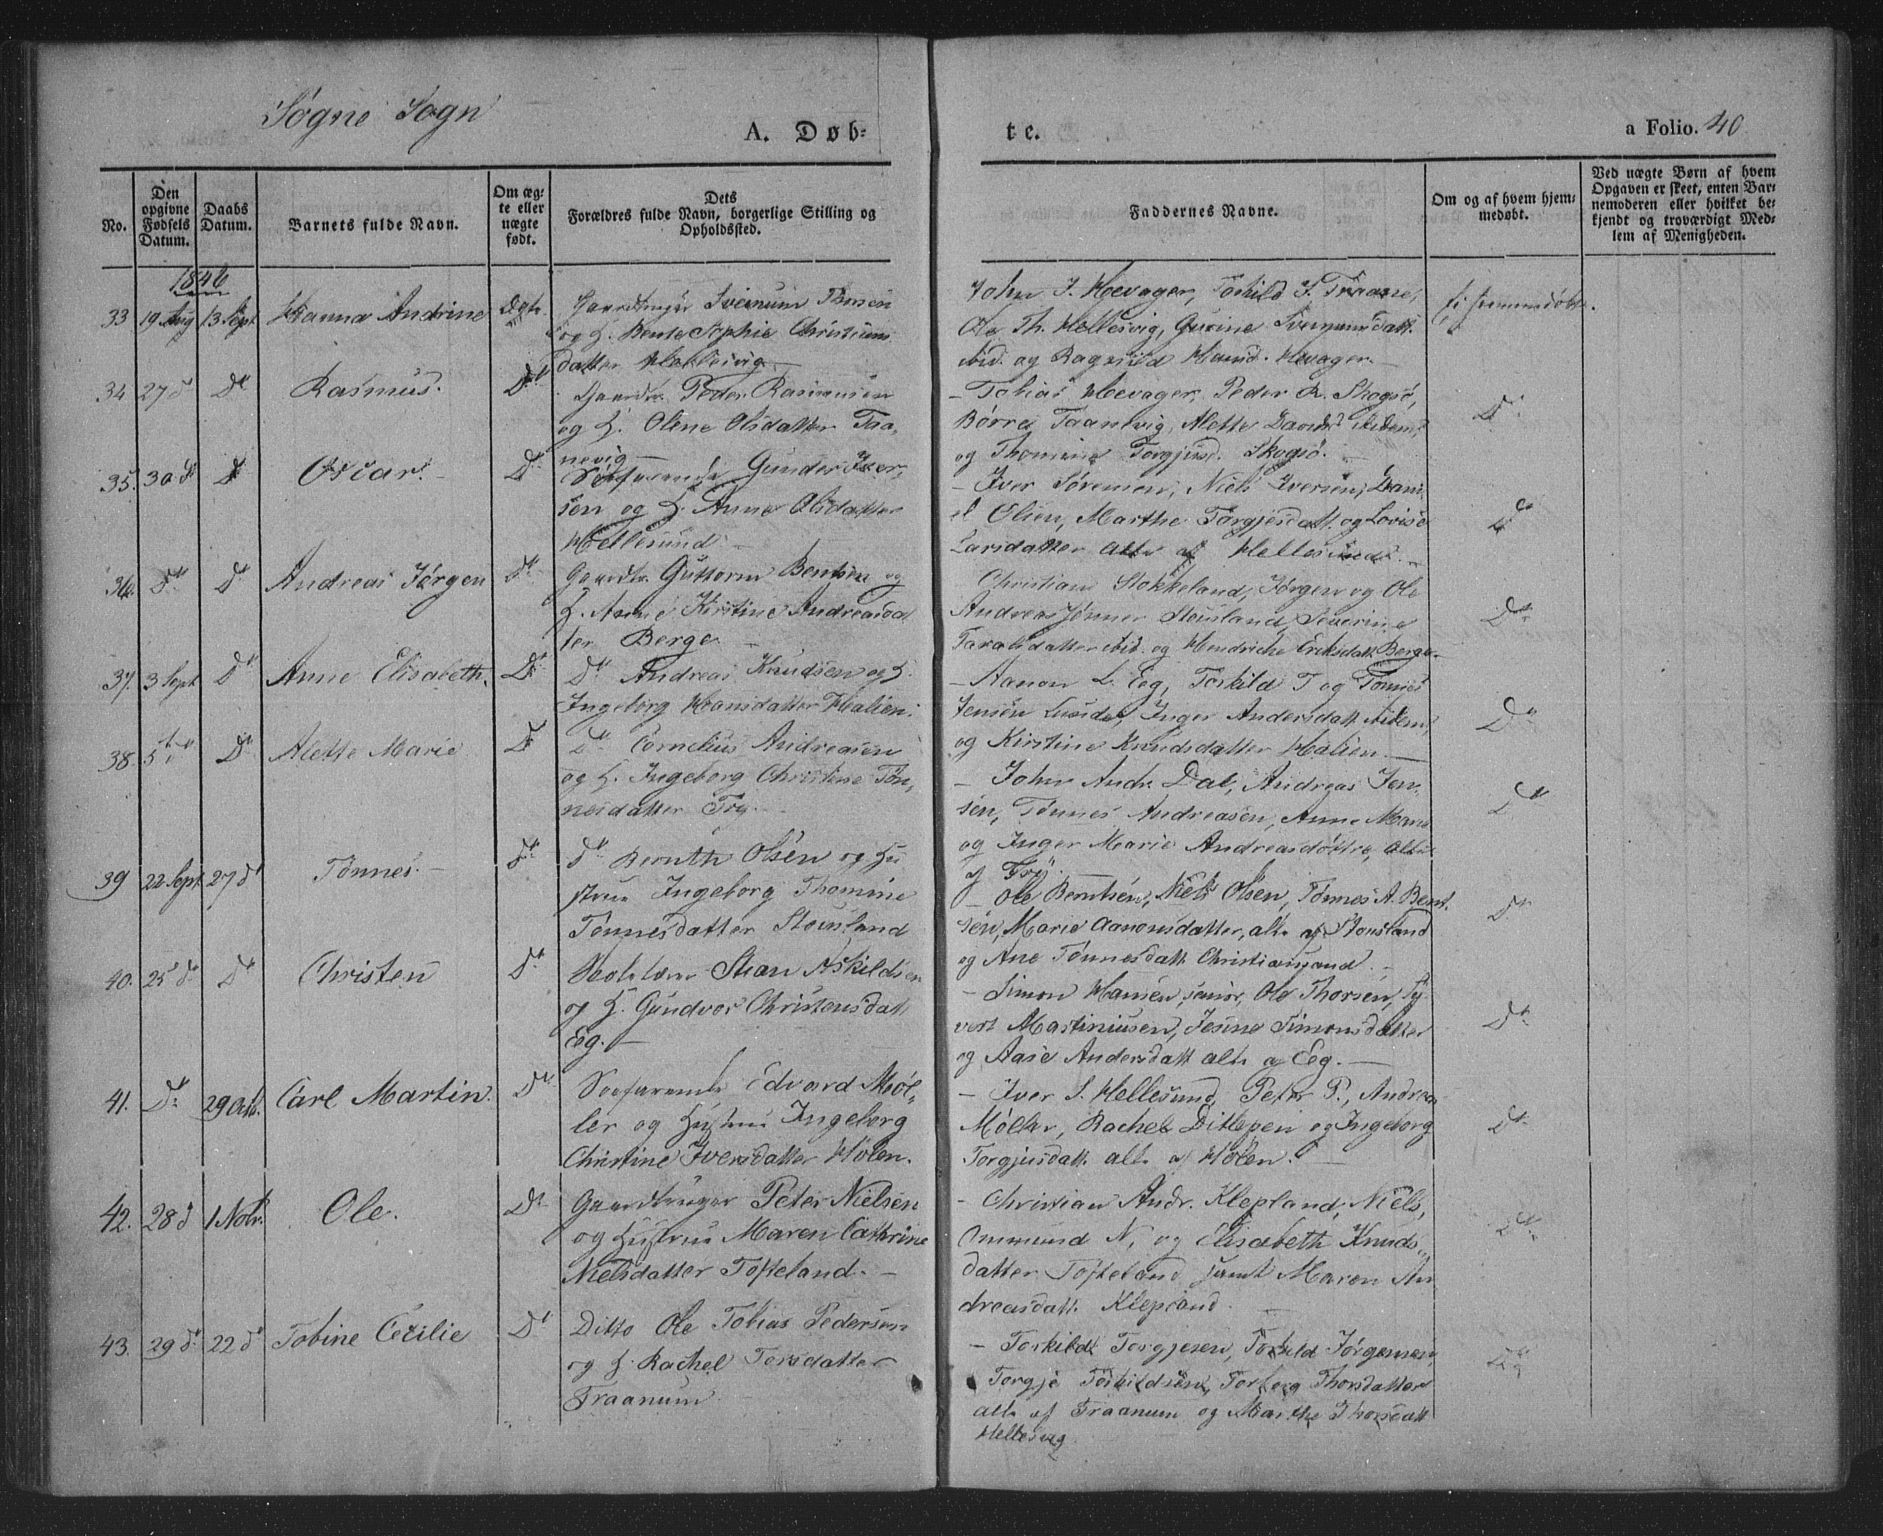 Søgne Sogn
A. Døb-
te.
a Folio. 40
No.
Den opgivne Fødsels Datum.
Daabs Datum.
Barnets fulde Navn.
Om ægte eller uægte født.
Dets Forældres fulde Navn, borgerlige Stilling og Opholdssted.
Faddernes Navne.
Om og af hvem hjemmedøbt.
Ved uægte Børn af hvem Opgaven er skeet, enten Barnemoderen eller hvilket bekjendt og troværdigt Medlem af Menigheden.
1846
33 19 Aug 13 Sept Hanna Andrine Ægte
Gaardbruger Sveinum
og H. Bente Sophie Christians
datter Hellesvig
John J. Hevager, Torkild J. Traane,
Ole Th. Hellesvig, Gurine
ibid. og Ragnild Hevager
ei hjemmedøbt.
34 27 d Dº Rasmus. Dº
Gaardbr. Peder Rasmusen
og H. Olene Olsdatter Taa-
nevig
- Tobias Hevager, Peder R. Skogsø,
Børre Taanevig, Alette Davids ibidem,
og Thomine Torgjusd. Skogsø.
Dº
35. 30 dº Dº Oscar. Dº
Søefarende Gunder Iver-
sen og H. Anne Olsdatter
Hellesund
- Iver Sørensen, Niels Iversen, Dani-
el Olsen, Marthe Torgjesdatt. og Lovise
Larsdatter alle af Hellesund.
Dº
36. Dº Dº Andreas Jørgen Dº
Gaardbr. Guttorm Bentsen og
H. Anne Kirstine Andreasdat
ter Berge
Christian Stokkeland, Jørgen og Ole
Andreas Stousland, Severine
Taraldsdatter ibid. og Hendriche Eriksdatt. Berge
Dº
37. 3 Sept Dº Anne Elisabeth. Dº
Dº Andreas Knudsen og H.
Ingeborg Hansdatter Halien.
- Aanon L. Eeg, Torkild T og Tønnes
Jensen Lunde, Inger Andersdatt. ibidem,
og Kirstine Knudsdatter Halien.
Dº
38. 5 Dº Alette Marie Dº
Dº Cornelius Andreasen
og H. Ingeborg Christine Tøn-
nesdatter Try.
- John Andr. Dal, Andreas Jen-
sen, Tønnes Andreasen, Anne Marie
og Inger Marie Andreasdøttre, alle
af Try.
Dº
39 22 Sept 27 dº Tønnes. Dº
Dº Bernth Olsen og Hu
strue Ingeborg Thomine
Tønnesdatter Stousland
- Ole Berntsen, Niels Olsen, Tønnes A. Bent-
sen, Marie Aanonsdatter, alle af Stousland
og Ane Tønnesdatt. Christiansand.
Dº
40. 25 dº Dº Christen Dº
Skolelærer Stian Askildsen
og H. Gundvor Christensdatt.
Eeg.
- Simon Hansen, senior, Ole Thorsen, Sy-
vert Martiniusen, Jesine Simonsdatter
og Aase Andersdatt alle af Eeg.
Dº
41. Dº 29 Octb. Carl Martin. Dº
Søefarende Edvard Møl-
ler og Hustrue Ingeborg
Christine Iversdatter Hølen.
- Iver S. Hellesund, Peter P., Andreas
Møller, Rachel Ditlevsen og Ingeborg
Torgjusdatt. alle af Hølen.
Dº
42. 28 d 1 Novbr. Ole. Dº
Gaardbruger Peter Nielsen
og Hustrue Maren Cathrine
Nielsdatter Tofteland.
- Christian Andr. Klepland, Niels,
Ommund N, og Elisabeth Knuds-
datter Tofteland, samt Maren An
dreasdatt. Klepland.
Dº
43. 29 dº 22 dº Tobine Cecilie Dº
Ditto Ole Tobias Pedersen
og H. Rachel Torsdatter
Traanum
- Torkild Torgjesen, Torkild Jørgensen,
Torgje Torkildsen, Torborg Thorsdatter
alle af Traanum og Marthe Thorsdatt
Hellesvig
Dº